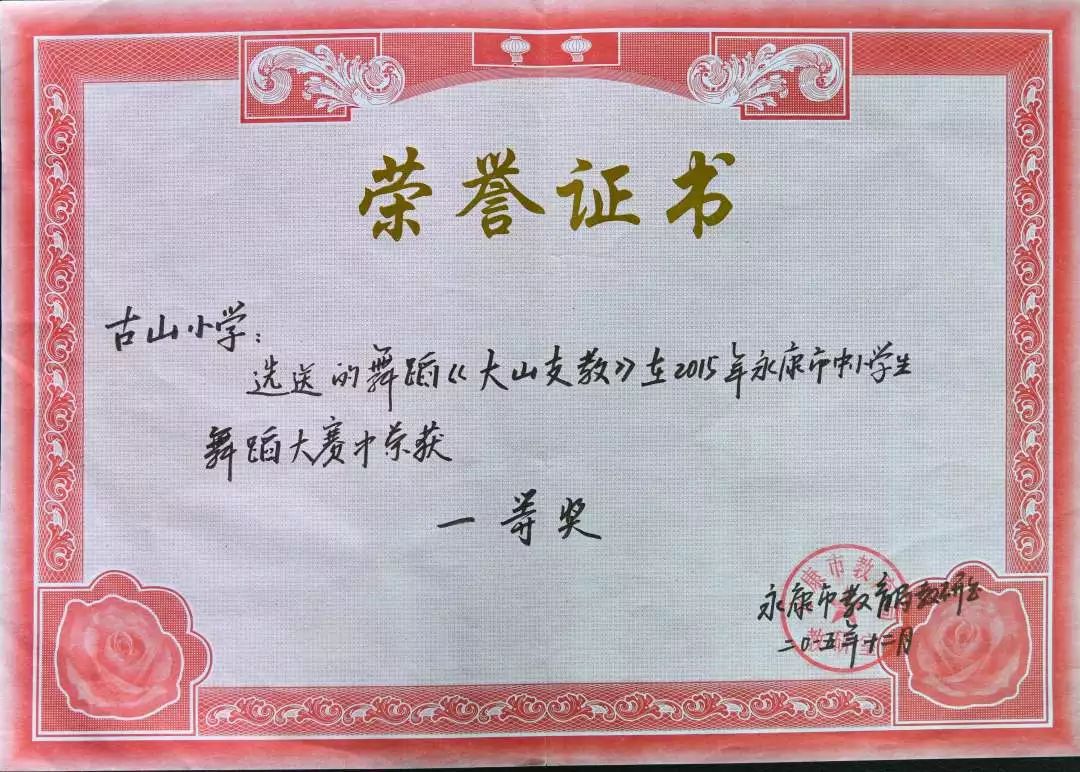 荣誉证书
古山小学：
选送的舞蹈《大山支教》在2015年永康市中小学生
舞蹈大赛中荣获
一等奖
永康市教育局教研室
二〇一五年十二月